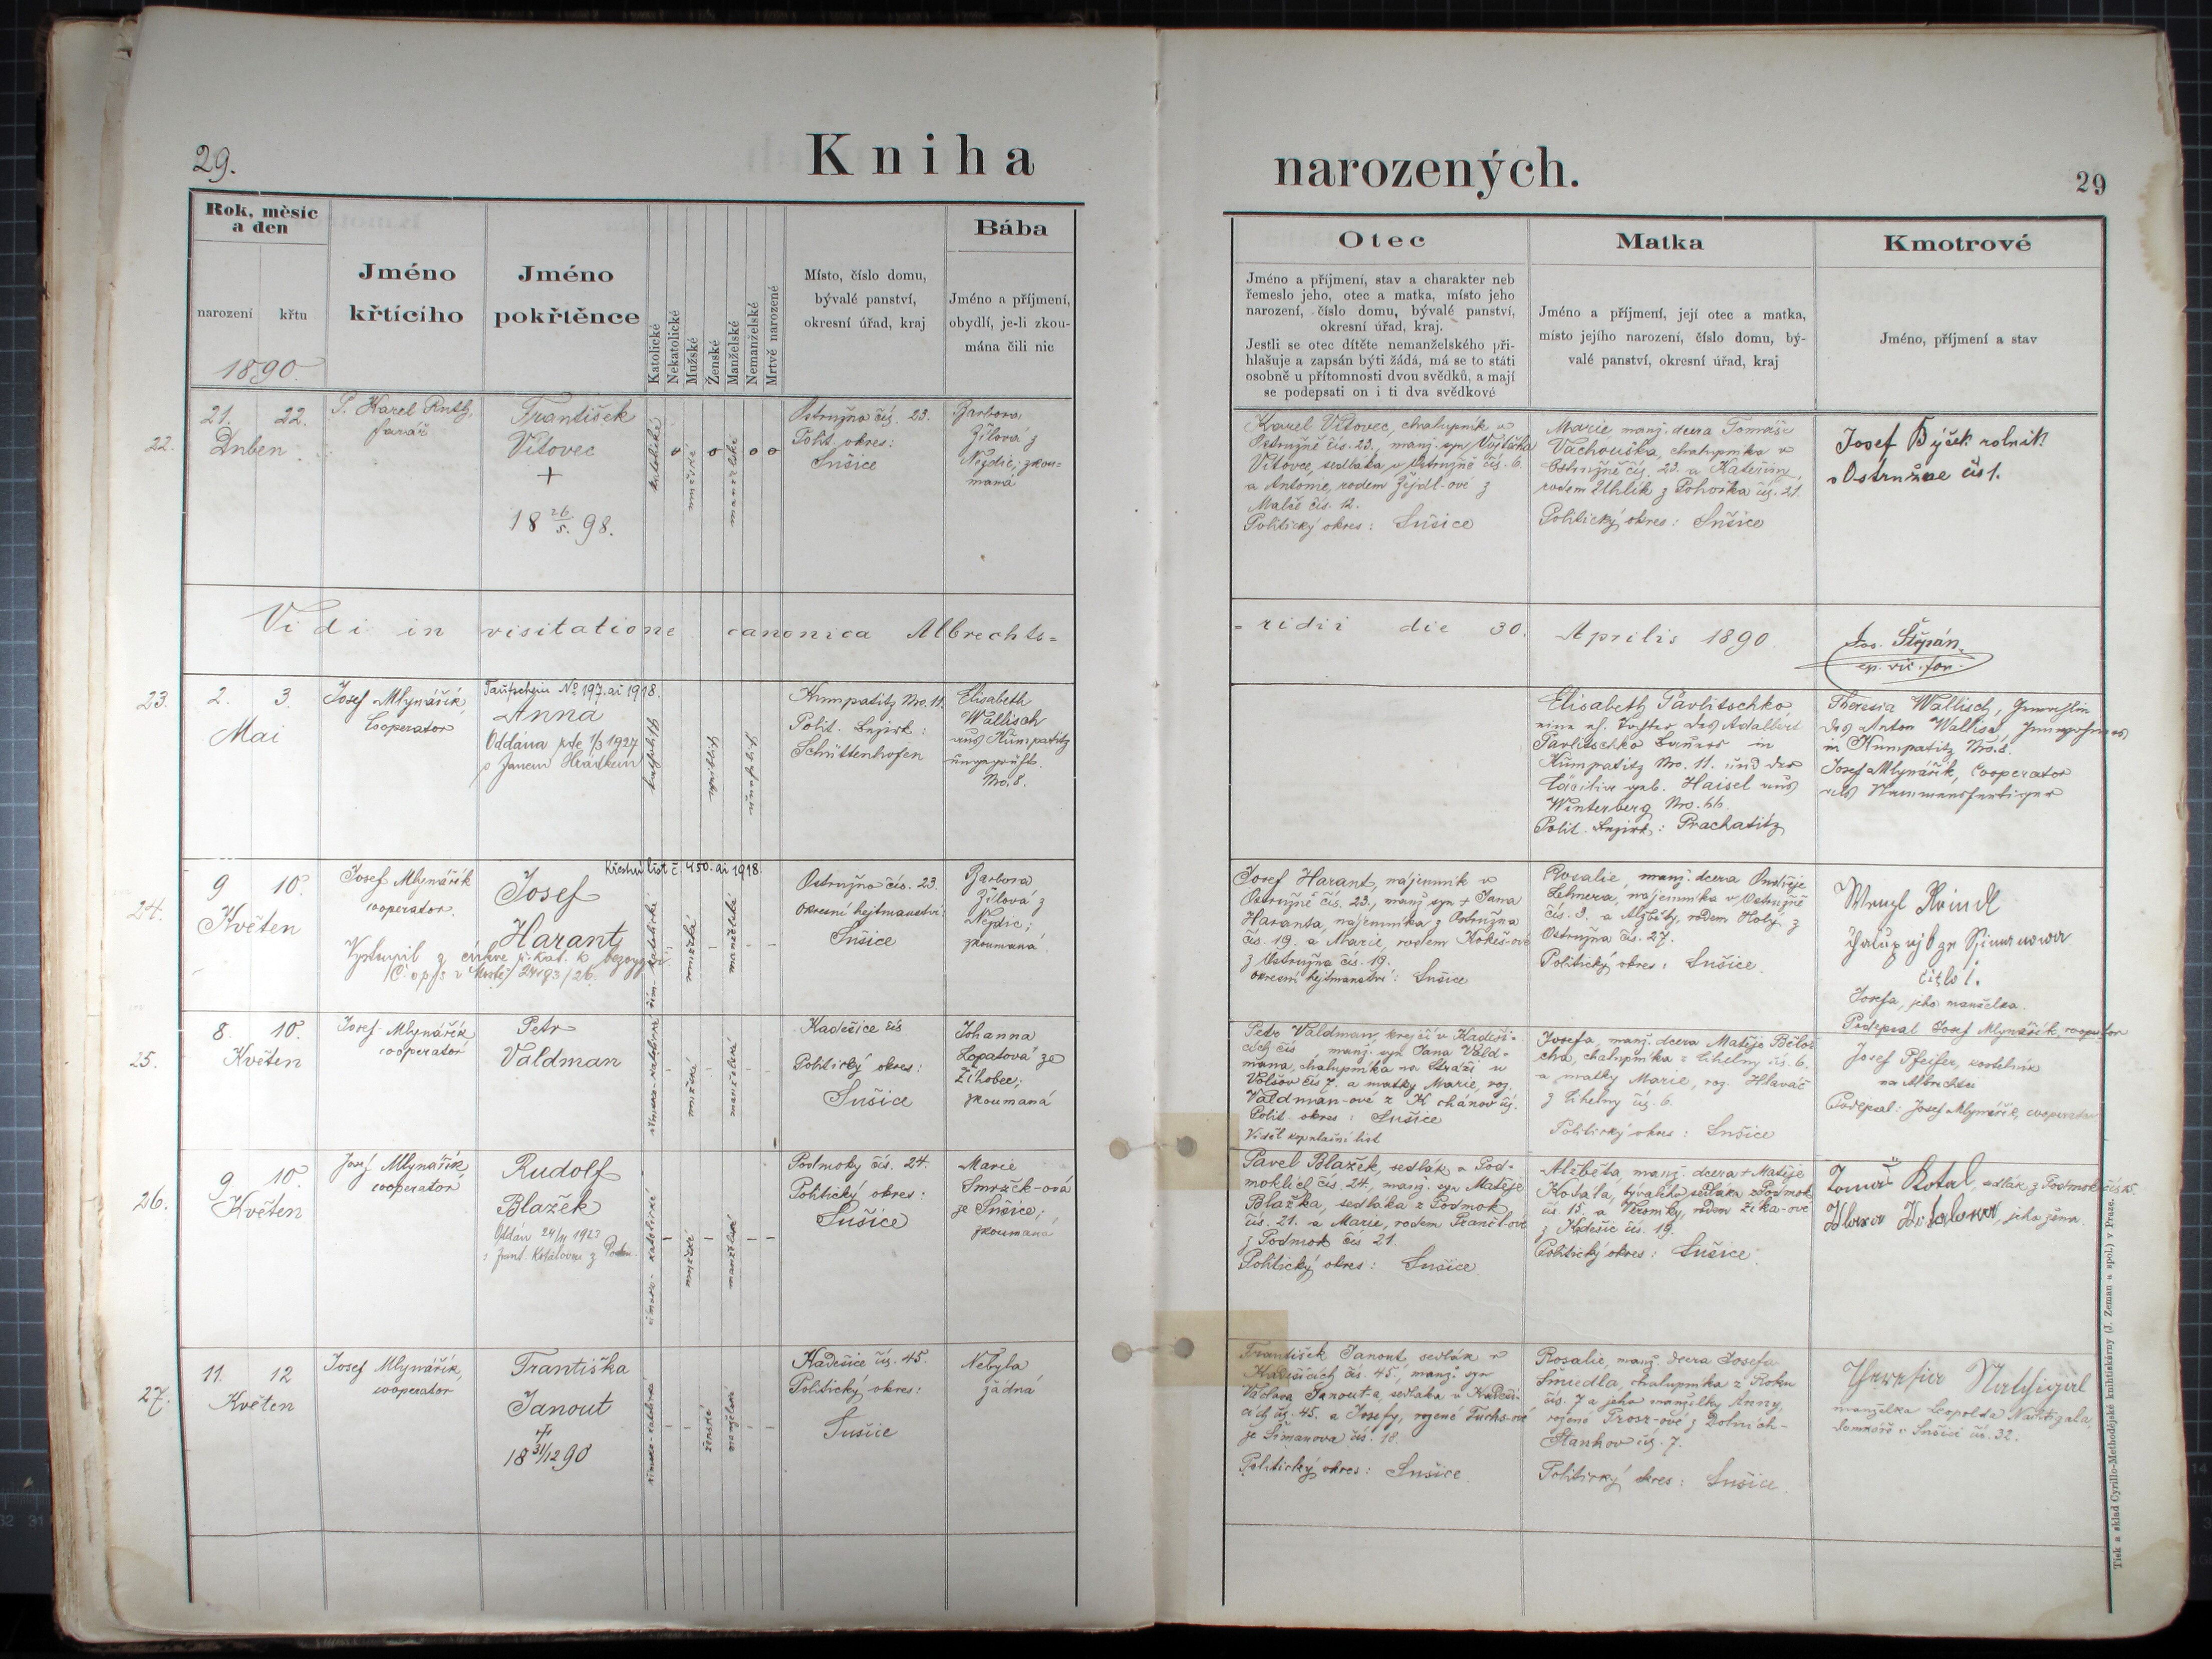 29.
Kniha
narozených.
29
Rok, měsíc
a den
narození
křtu
1890.
Jméno
křtícího
Jméno
pokřtěnce
Katolické
Nekatolické
Mužské
Ženské
Manželské
Nemanželské
Mrtvě narozené
Místo, číslo domu,
bývalé panství,
okresní úřad, kraj
Bába
Jméno a příjmení,
obydlí, je-li zkou-
mána čili nic
Otec
Jméno a příjmení, stav a charakter neb
řemeslo jeho, otec a matka, místo jeho
narození, číslo domu, bývalé panství,
okresní úřad, kraj.
Jestli se otec dítěte nemanželského při-
hlašuje a zapsán býti žádá, má se to státi
osobně u přítomnosti dvou svědků, a mají
se podepsati on i ti dva svědkové
Matka
Jméno a příjmení, její otec a matka,
místo jejího narození, číslo domu, bý-
valé panství, okresní úřad, kraj
Kmotrové
Jméno, příjmení a stav
22.
21. 22.
Duben.
P. Karel Ruth,
farář
František
Vítovec
+
18 26/5. 98.
katolické
mužské
manželské
Ostružno čís. 23.
Polit. okres:
Sušice
Barbora
Žilová z
Nezdic; zkou-
maná
Karel Vítovec, chalupník v
Ostružně čís. 23., manž. syn Vojtěcha
Vítovce, sedláka v Ostružně čís. 6.
a Antonie, rodem Žejdl-ové z
Malče čís. 12.
Politický okres: Sušice
Marie manž. dcera Tomáše
Vachouška, chalupníka v
Ostružně čís. 23. a Kateřiny,
rodem Uhlík z Pohorska čís. 21.
Politický okres: Sušice
Josef Býček rolník
v Ostružne čís 1.
Vidi in visitatione canonica Albrechts=
=ridii die 30. Aprilis 1890
Jos. Štěpán,
ep. vic. for.
23.
2. 3.
Mai
Josef Mlynářík,
Cooperator
Taufschein No 197. ai 1918.
Anna
Oddána zde 1/3 1927
s Janem Hrádkem
katholisch
weiblich
unehelich
Kumpatitz No. 11.
Polit. Bezirk:
Schüttenhofen
Elisabeth
Wallisch
aus Kumpatitz
ungeprüft.
No. 8.
Elisabeth Pavlitschko
eine eh. Tochter des Adalbert
Pavlitschko Bauers in
Kumpatitz No. 11. und der
Cäcilia geb. Haisel aus
Winterberg No. 66.
Polit. Bezirk: Prachatitz
Theresia Wallisch, Gemahlin
des Anton Wallisch,
in Kumpatitz No. 8.
Josef Mlynářík, Cooperator
als Namensfertiger
24.
9 10.
Květen
Josef Mlynářík
cooperator.
Křestní list č. 450. ai 1918.
Josef
Harant
Vystoupil z církve ř. kat. k bezvyzn.
24193/26.
řím.-katolické
mužské
manželské
Ostružno čís. 23.
Okresní hejtmanství:
Sušice
Barbora
Žilová z
Nezdic;
zkoumaná
Josef Harant, nájemník v
Ostružně čís. 23., manž syn + Jana
Haranta, nájemníka z Ostružna
čís. 19. a Marie, rodem Kokeš-ové
z Ostružna čís. 19.
Okresní hejtmanství: Sušice
Rosalie, manž. dcera Ondřeje
Lehnera, nájemníka v Ostružně
čís. 3. a Alžběty, rodem Holý z
Ostružna čís. 27.
Politický okres: Sušice
Wenzl Reindl
číslo 1.
Josefa, jeho manželka.
Podepsal Josef Mlynářík, cooperator
25.
8. 10.
Květen
Josef Mlynářík
cooperator
Petr
Valdman
římsko-katolické
mužské
manželské
Kadešice čís
Politický okres:
Sušice
Johanna
Lopatová ze
Žihobec;
zkoumaná
Petr Valdman, krejčí v Kadeši-
cích čís , manž. syn Jana Vald-
mana, chalupníka na Stráži u
Volšov čís 7. a matky Marie, roz.
Valdman-ové z K chánov čís.
Polit. okres: Sušice
Viděl kopulační list
Josefa, manž. dcera Matěje Bělou
cha, chalupníka z Cihelny čís. 6.
a matky Marie, roz. Hlaváč
z Cihelny čís. 6.
Politický okres: Sušice
Josef Pfeifer, kostelník
na Albrechtci
Podepsal: Josef Mlynářík, cooperator
26.
9. 10.
Květen
Josef Mlynářík,
cooperator
Rudolf
Blažek
Oddán 24/4 1923
s Frant. Kotálovou z Podm.
římsko-katolické
mužské
manželské
Podmoky čís. 24.
Politický okres:
Sušice
Marie
Smrčk-ová
ze Sušice;
zkoumaná
Pavel Blažek, sedlák v Pod-
moklích čís. 24, manž. syn Matěje
Blažka, sedláka z Podmok
čís. 21. a Marie, rodem Prančl-ové
z Podmok čís 21.
Politický okres: Sušice
Alžběta, manž. dcera + Matěje
Kotála, bývalého sedláka z Podmok
čís. 15. a Veroniky, rodem Zíka-ové
z Kadešic čís. 19.
Politický okres: Sušice
Tomáš Kotal, sedlák z Podmok čís 15.
Kotalowa, jeho žena.
27.
11. 12
Květen
Josef Mlynářík,
cooperator
Františka
Janout
+
18 31/12 90
římsko-katolické
ženské
manželské
Kadešice čís. 45.
Politický okres:
Sušice
Nebyla
žádná
František Janout, sedlák v
Kadešicích čís. 45., manž. syn
Václava Janouta, sedláka v Kadeši-
cích čís. 45. a Josefy, rozené Fuchs-ové
ze Šimanova čís. 18.
Politický okres: Sušice
Rosalie, manž. dcera Josefa
Šmiedla, chalupníka z Roku
čís. 7 a jeho manželky Anny,
rozené Prosr-ové z Dolních-
Staňkov čís. 7.
Politický okres: Sušice
Theresia Nachtigal
manželka Leopolda Nachtigala,
v Sušici čís. 32.
Tisk a sklad Cyrillo-Methodějské knihtiskárny (J. Zeman a spol.) v Praze.